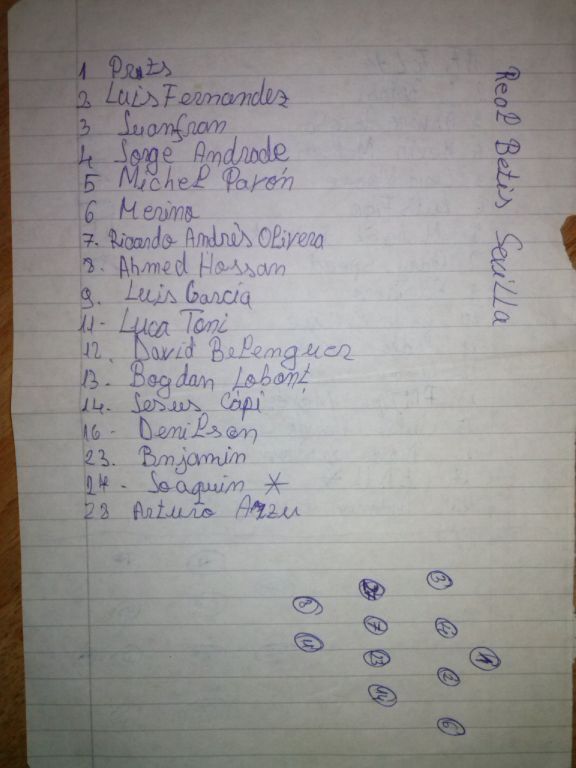 Real Betis Sevilla
1 Prats
2 Luis Fernandez
3 Juanfran
4 Jorge Andrade
5 Michel Pavón
6 Merino
7. Ricardo Andrés Olivera
8. Ahmed Hossan
9. Luis García
11- Luca Toni
12. David Belenguer
13. Bogdan Lobont
14. Jesus Cápi
16- Denilson
23. Bnjamin
24- Joaquin *
28 Arturo Arzu
3
8 7 4
11 23 2 1
14 6